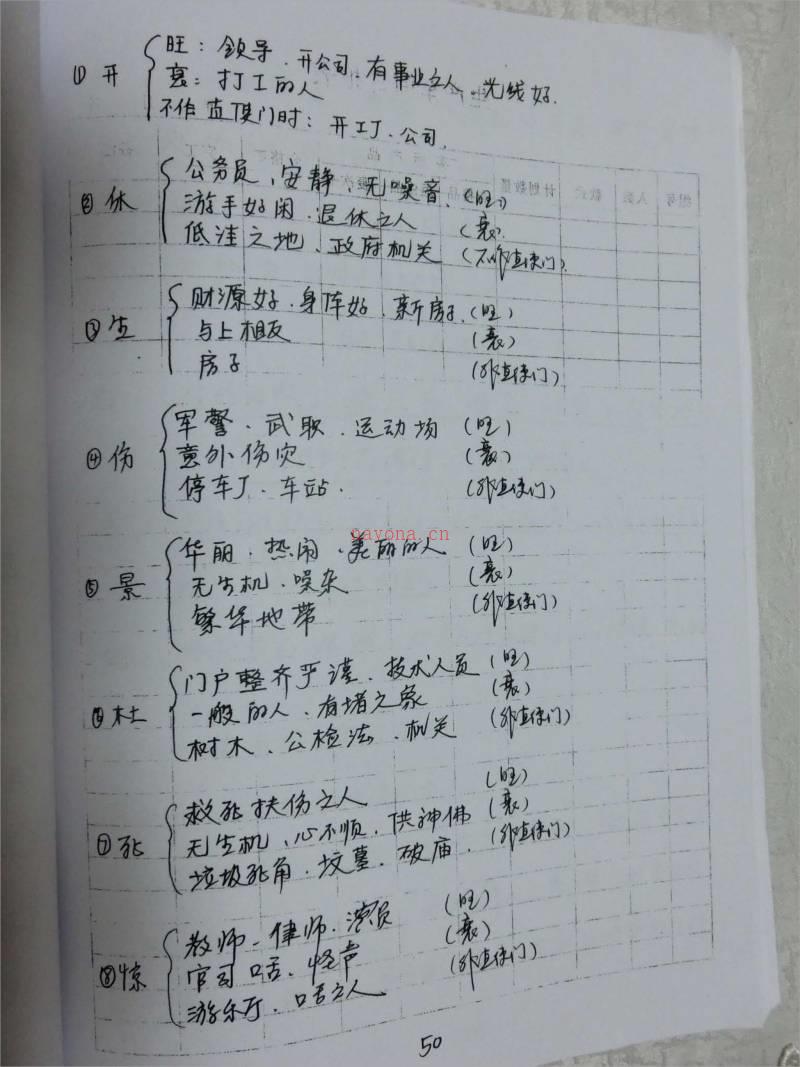 ① 开 旺：领导、开公司、有事业之人、光线好.
衰：打工的人
不作直使门时：开工厂、公司.
② 休 公务员、安静、无噪音. (旺)
游手好闲、退休之人 (衰)
低洼之地、政府机关 (不作直使门)
③ 生 财源好、身体好、新房子. (旺)
与上相反 (衰)
房子 (非直使门)
④ 伤 军警、武职、运动场 (旺)
意外伤灾 (衰)
停车厂、车站. (非直使门)
gayona.cn
⑤ 景 华丽、热闹、美丽的人 (旺)
无生机、噪杂 (衰)
繁华地带 (非直使门)
⑥ 杜 门户整齐严谨、技术人员 (旺)
一般的人、有堵之象 (衰)
树木、公检法、机关 (非直使门)
⑦ 死 救死扶伤之人 (旺)
无生机、心不顺、供神佛 (衰)
垃圾死角、坟墓、破庙. (非直使门)
⑧ 惊 教师、律师、演员 (旺)
官司口舌、怪声 (衰)
游乐厅、口舌之人 (非直使门)
50